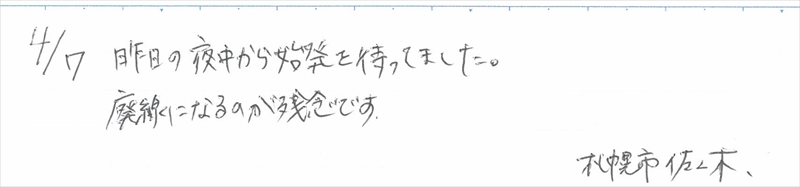 4/7 昨日の夜中から始発を待ってました。
廃線になるのが残念です.
札幌市佐々木、